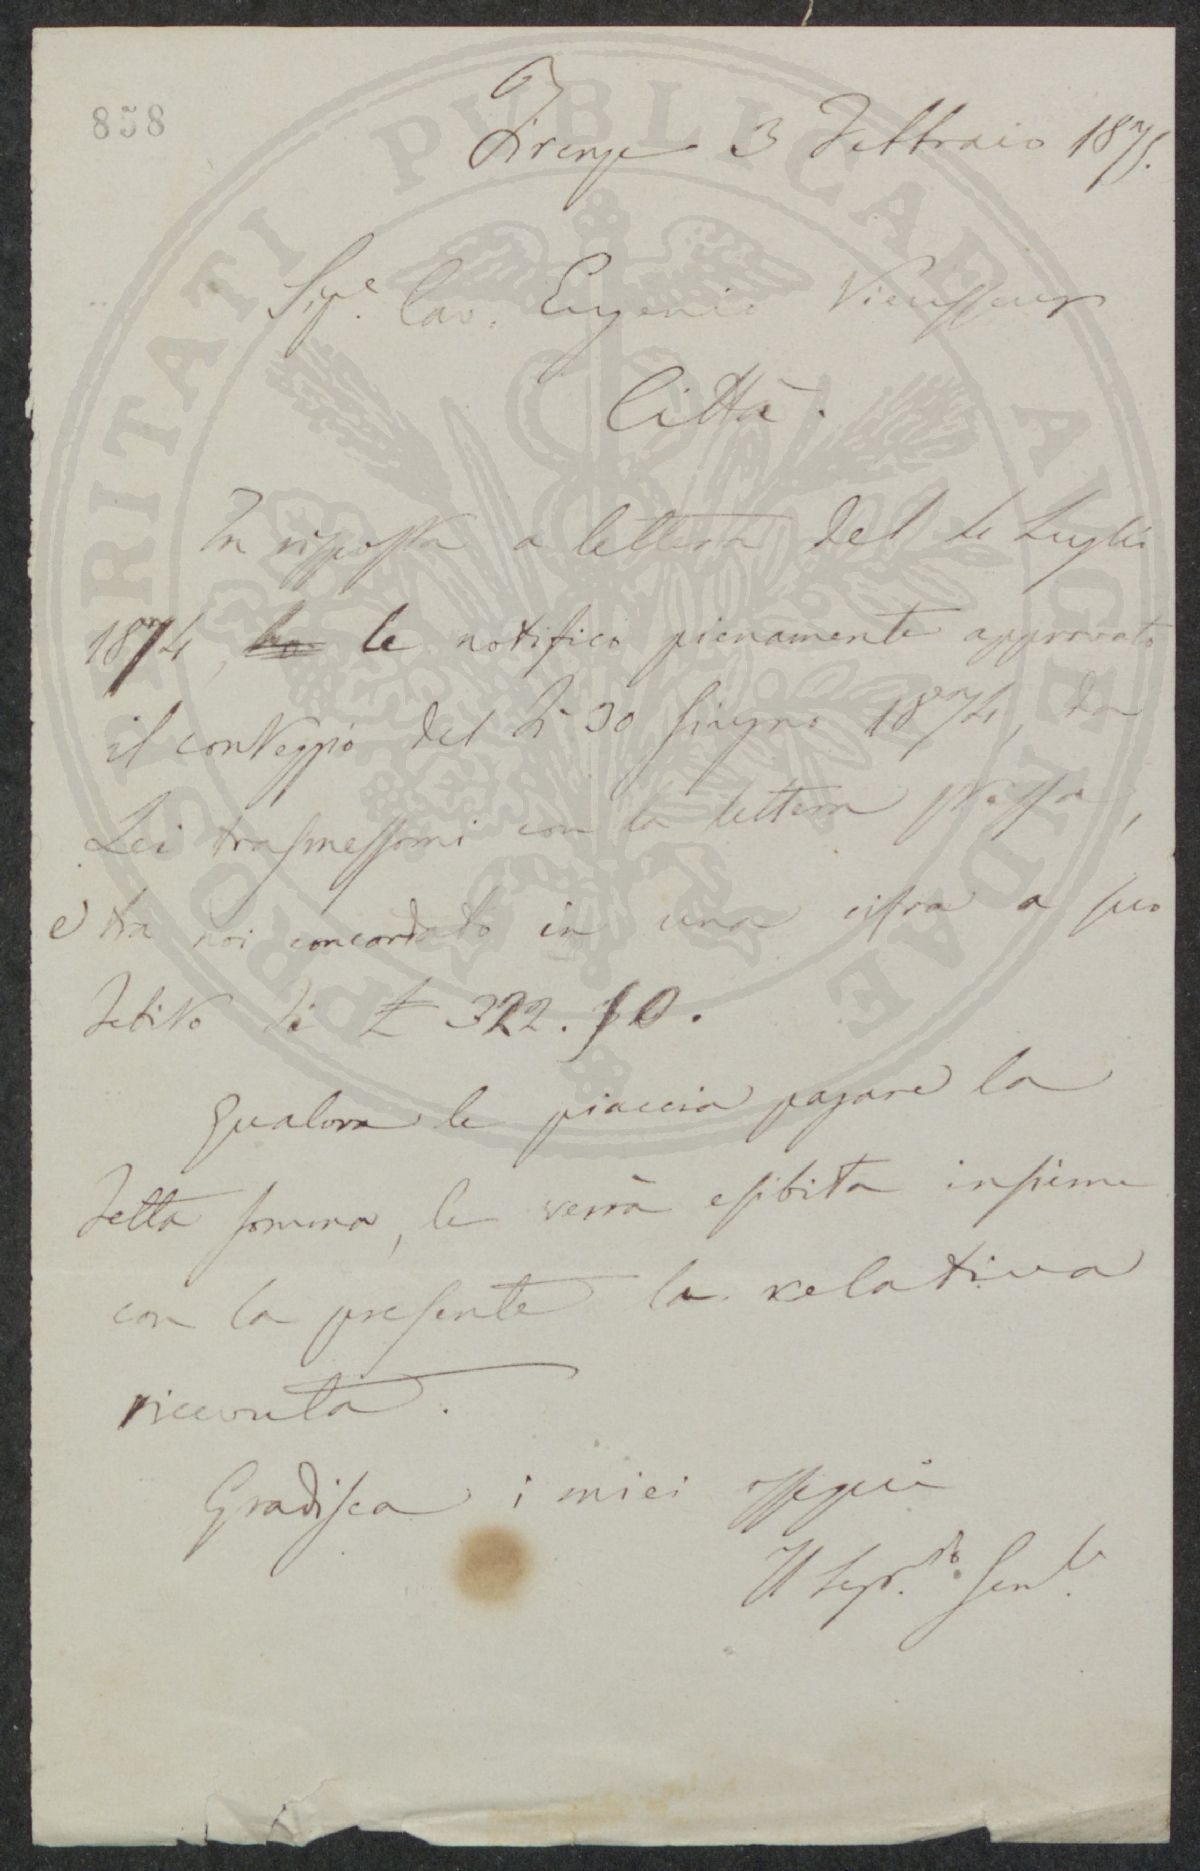 858
Firenze 3 Febbraio 1875.
Sigr. Cav. Eugenio Vieusseux
Città.
In risposta a lettera del 4 Luglio
1874, le notifico pienamente approvato
il conteggio del dì 30 Giugno 1874, da
Lei trasmessomi con la lettera stessa,
e tra noi concordato in una cifra a suo
debito di £ 322.10.
Qualora le piaccia pagare la
detta somma, le verrà esibita insieme
con la presente la relativa
ricevuta.
Gradisca i miei ossequi
Il Segr.rio Gen.le
PROSPERITATI PVBLICAE AVGENDAE